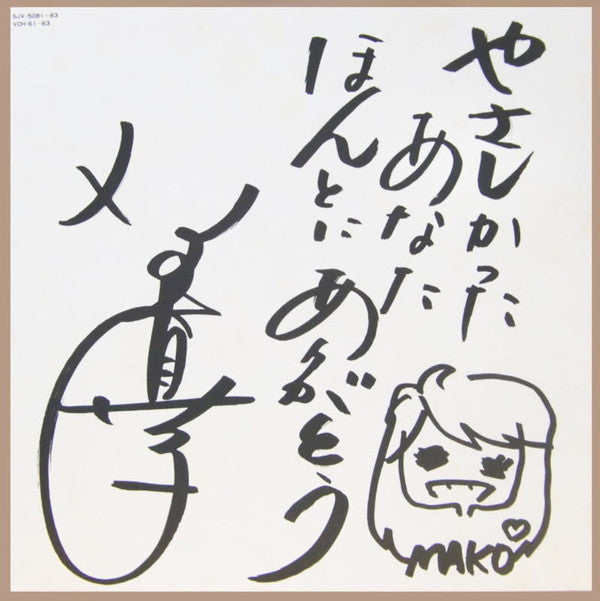 SJV-5061~63
VCH-61~63
やさしかった
あなた
ほんとに
ありがとう
MAKO